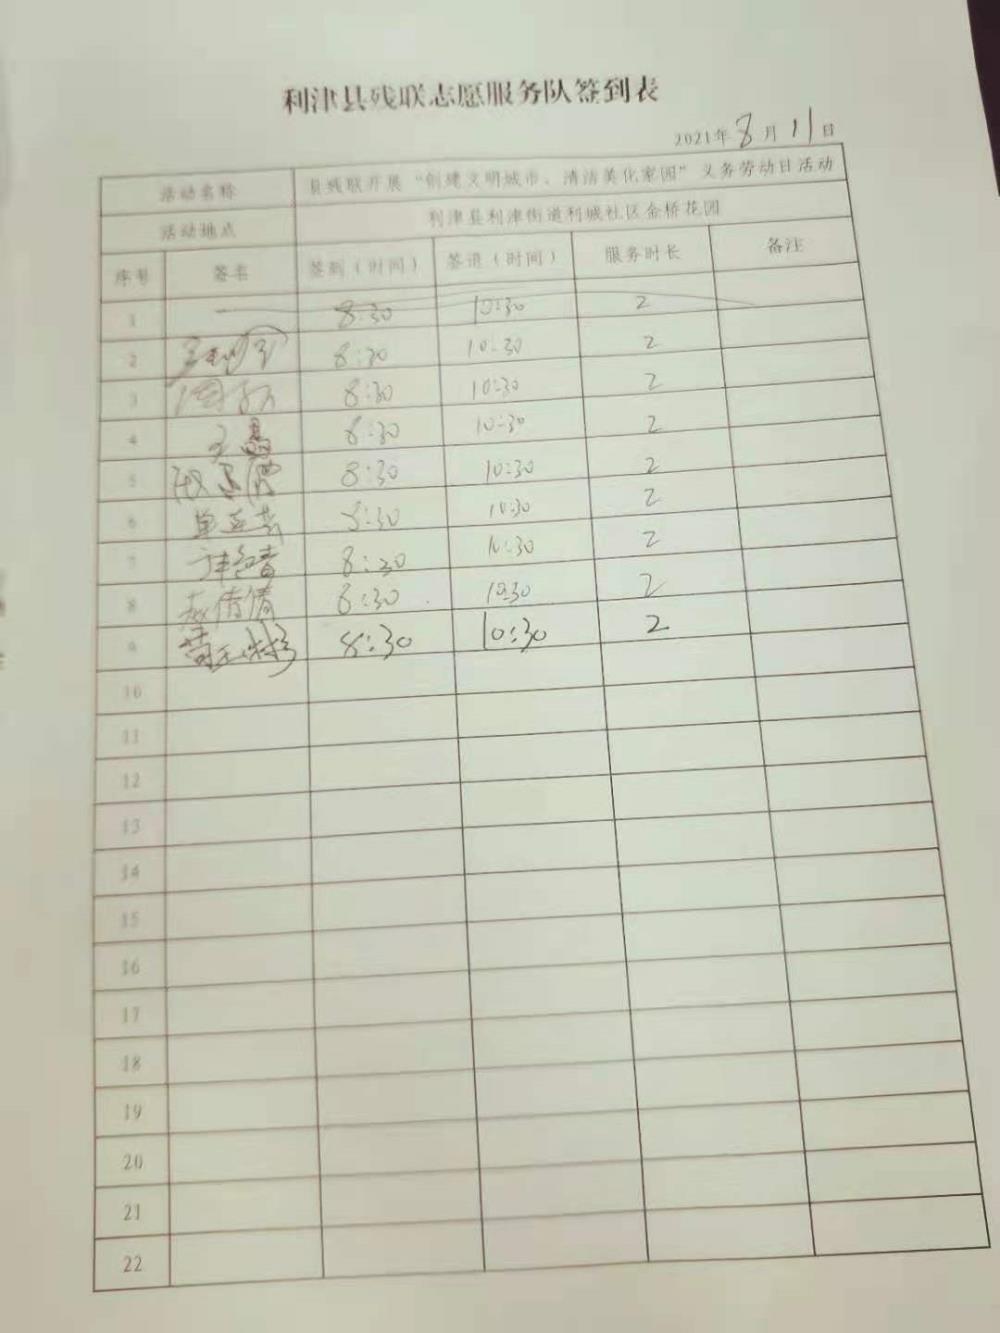 利津县残联志愿服务队签到表
2021年8月11日
活动名称 县残联开展“创建文明城市、清洁美化家园”义务劳动日活动
活动地点 利津县利津街道利城社区金桥花园
序号 签名 签到（时间） 签退（时间） 服务时长 备注
1 8:30 10:30 2
2 8:30 10:30 2
3 8:30 10:30 2
4 王晶 8:30 10:30 2
5 8:30 10:30 2
6 8:30 10:30 2
7 8:30 10:30 2
8 赵倩倩 8:30 10:30 2
9 8:30 10:30 2
10
11
12
13
14
15
16
17
18
19
20
21
22